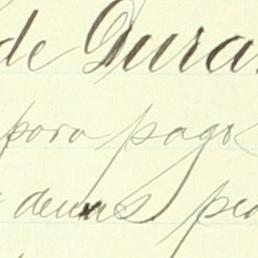 de Dura
para pago
demas pec